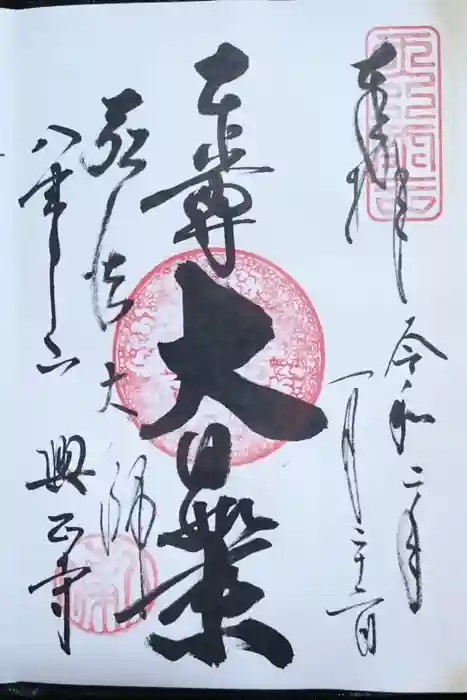 奉拝
令和二年
一月二十二日
本尊
大日如来
弘法大師
八事山
興正寺